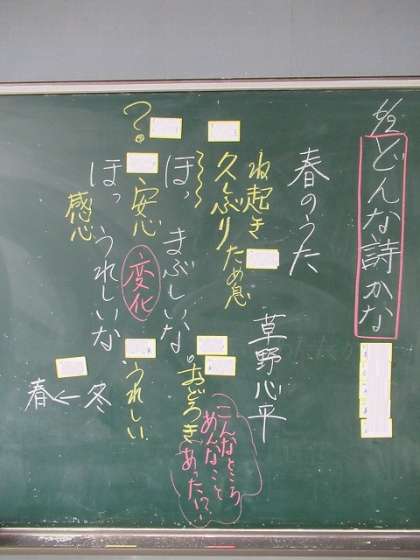 6/2
どんな詩かな
春のうた
草野心平
ね起き
久しぶり
ため息
ほっ まぶしいな。
おどろき
こんなところ
あんなこと
あった!?
?
安心
変化
うれしい
ほっ うれしいな
感心
春←冬